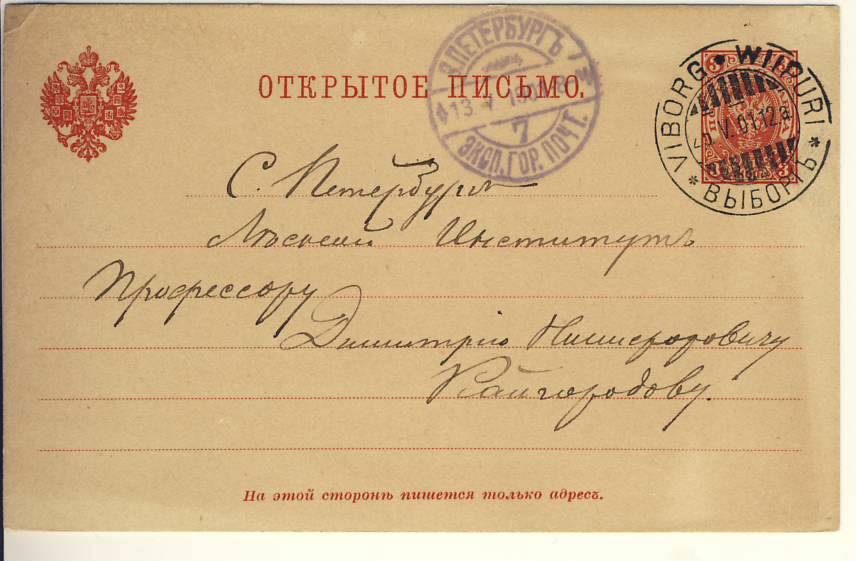 ОТКРЫТОЕ ПИСЬМО.
С.ПЕТЕРБУРГЪ
13 V
7
ЭКСП.ГОР.ПОЧТ.
VIBORG • WIIPURI
V.01.12
* ВЫБОРГЪ *
С. Петербургъ
Лѣсной Институтъ
Профессору
Димитрію Никифоровичу
Кайгородову.
На этой сторонѣ пишется только адресъ.